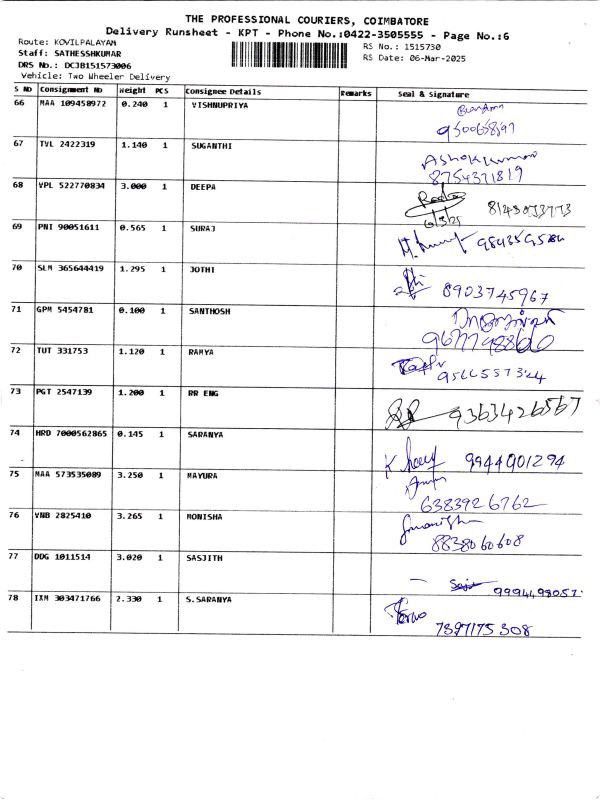 THE PROFESSIONAL COURIERS, COIMBATORE
Delivery Runsheet - KPT - Phone No.:0422-3505555 - Page No.:6
Route: KOVILPALAYAM RS No.: 1515730
Staff: SATHESSHKUMAR RS Date: 06-Mar-2025
DRS No.: DCJB151573006
Vehicle: Two Wheeler Delivery
S NO Consignment NO Weight PCS Consignee Details Remarks Seal & Signature
66 MAA 109458972 0.240 1 VISHNUPRIYA
67 TVL 2422319 1.140 1 SUGANTHI
Ashokkumar
8754371819
68 VPL 522770834 3.000 1 DEEPA
6/3/25
69 PNI 90051611 0.565 1 SURAJ
70 SLM 365644419 1.295 1 JOTHI
8903745967
71 GPM 5454781 0.100 1 SANTHOSH
72 TUT 331753 1.120 1 RAMYA
73 PGT 2547139 1.200 1 RR ENG
9363426567
74 HRD 7000562865 0.145 1 SARANYA
9944901294
75 MAA 573535089 3.250 1 MAYURA
6383926762
76 VNB 2825410 3.265 1 MONISHA
8838060608
77 DDG 1011514 3.020 1 SASJITH
78 IXM 303471766 2.330 1 S.SARANYA
7397175308